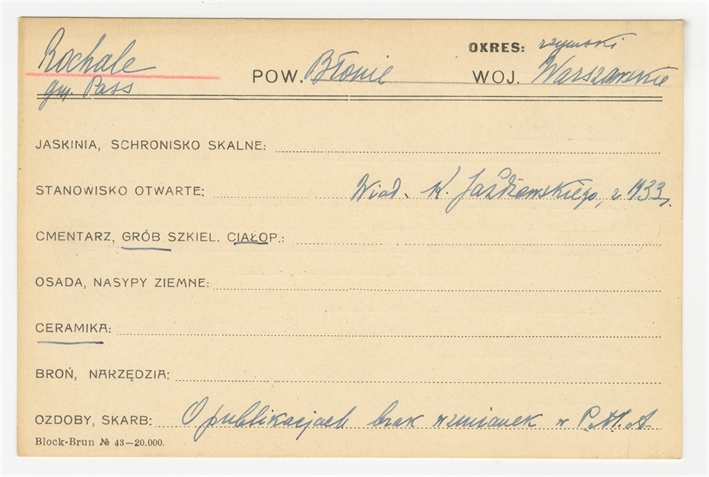 OKRES: rzymski
Rochale POW. Błonie WOJ. Warszawskie
gm. Pass
JASKINIA, SCHRONISKO SKALNE:
STANOWISKO OTWARTE: Wiad. K. Jażdżewskiego, r. 1933.
CMENTARZ, GRÓB SZKIEL. CIAŁOP.:
OSADA, NASYPY ZIEMNE:
CERAMIKA:
BROŃ, NARZĘDZIA:
OZDOBY, SKARB: O publikacjach brak wzmianek w P.M.A.
Block-Brun № 43—20.000.